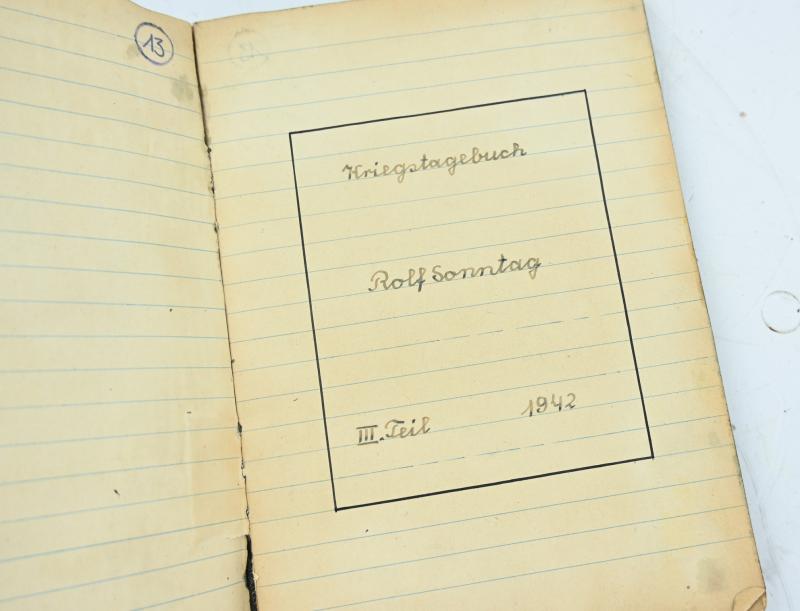 13
Kriegstagebuch
Rolf Sonntag
III. Teil 1942